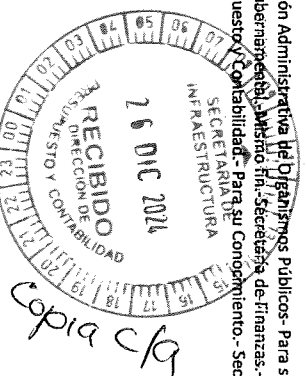 ón Administrativa de Organismos Públicos- Para s
bernamental.-Mismo fin.-Secretaría de Finanzas.-
uesto y Contabilidad.- Para su Conocimiento.- Sec
SECRETARÍA DE
INFRAESTRUCTURA
26 DIC 2024
RECIBIDO
DIRECCIÓN DE
PRESUPUESTO Y CONTABILIDAD
00 01 02 03 04 05 06 07
15 16 17 18 19 20 21 22 23
Copia c/a